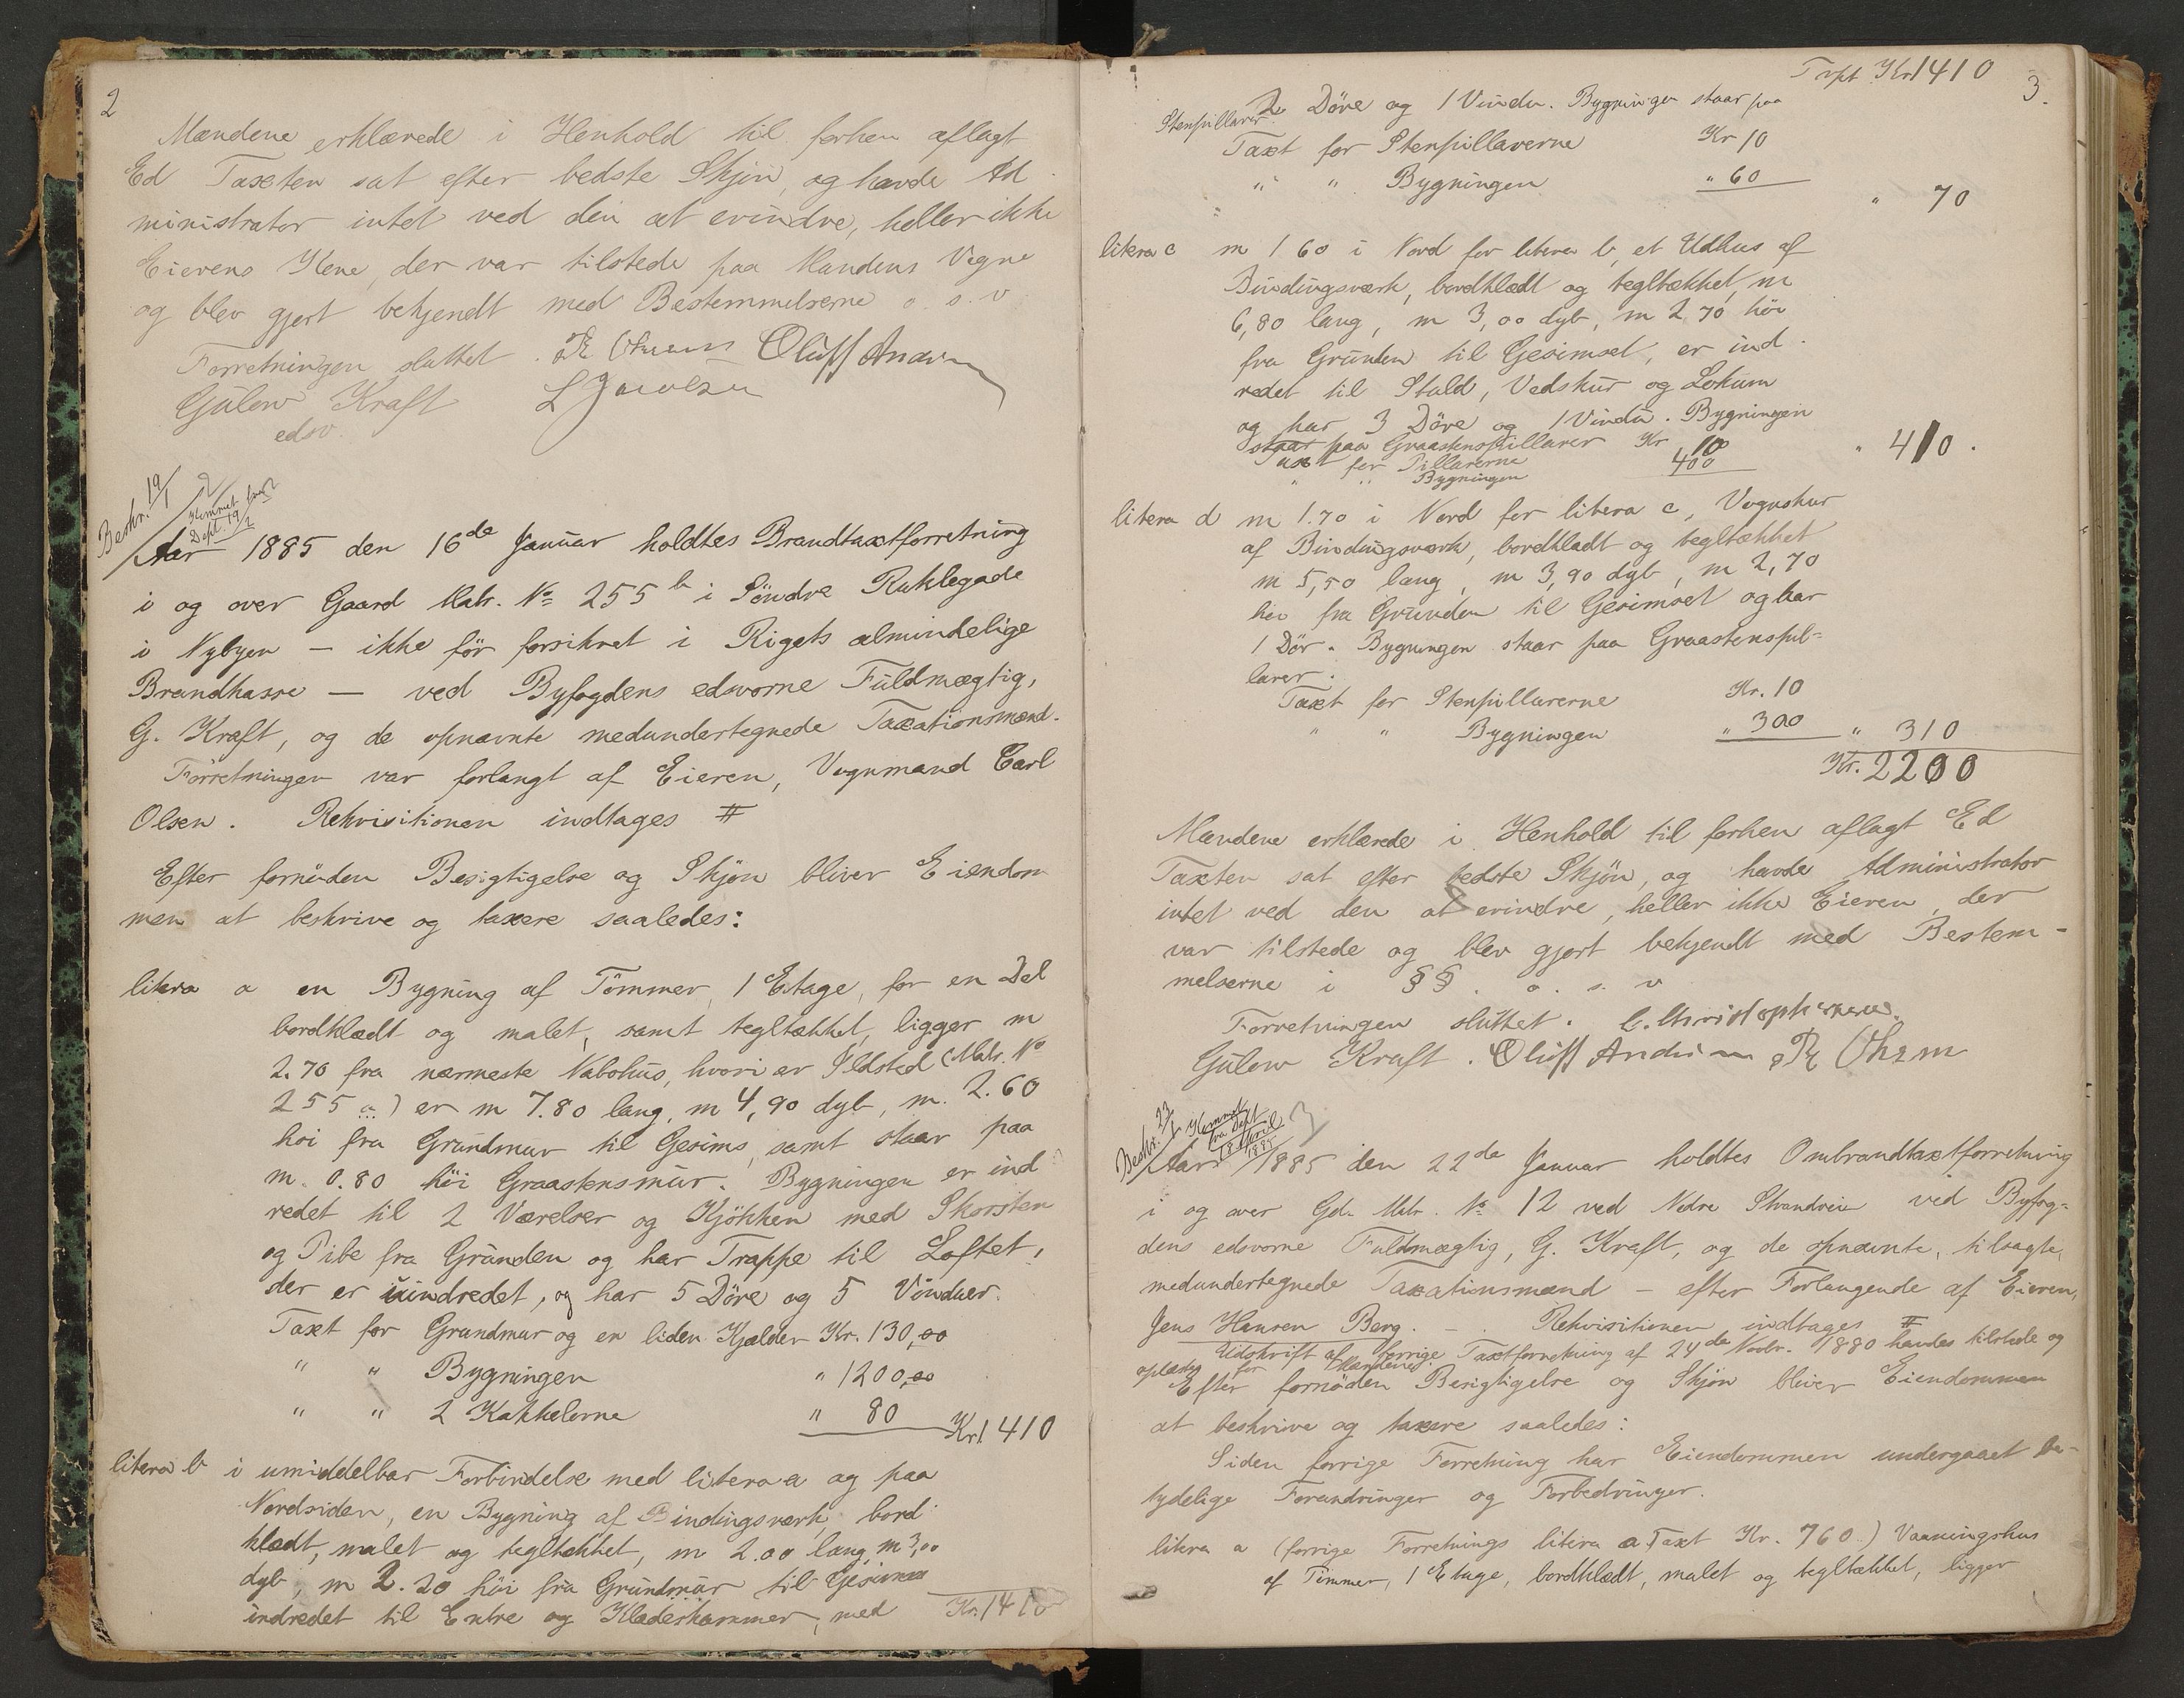 2
Mændene erklærede i Henhold til forhen aflagt
Ed Taxten sat efter bedste Skjøn, og havde Ad
ministrator intet ved den at erindre, heller ikke
Eierens Kone, der var tilstede paa Mandens Vegne
og blev gjort bekjendt med Bestemmelserne o. s. v
Forretningen sluttet. Oluff
Gülow Kraft
edsv.
Beskr. 19/1
2
Kommet fra
Dept. 19/2
Aar 1885 den 16de Januar holdtes Brandtaxtforretning
i og over Gaard Matr. No 255 b i Söndre Ruklegade
i Nybyen — ikke för forsikret i Rigets almindelige
Brandkasse — ved Byfogdens edsvorne Fuldmægtig,
G. Kraft, og de opnævnte medundertegnede Taxationsmænd.
Forretningen var forlangt af Eieren, Vognmand Carl
Olsen. Rekvisitionen indtages #
Efter fornöden Besigtigelse og Skjøn bliver Eiendom
men at beskrive og taxere saaledes:
litera a en Bygning af Tömmer, 1 Etage, for en Del
bordklædt og malet, samt tegltækket, ligger m
2.70 fra nærmeste Nabohus, hvori er Ildsted (Matr. No
255 a) er m 7.80 lang, m 4,90 dyb, m. 2.60
höi fra Grundmur til Gesims, samt staar paa
m. 0.80 höi Graastensmur. Bygningen er ind
redet til 2 Værelser og Kjökken med Skorsten
og Pibe fra Grunden og har Trappe til Loftet,
der er uindredet, og har 5 Döre og 5 Vinduer.
Taxt for Grundmur og en liden Kjælder Kr. 130,00
" " Bygningen " 1200,00
" " 2 Kakkelovne " 80 Kr 1410
litera b i umiddelbar Forbindelse med litera a og paa
Nordsiden, en Bygning af Bindingsverk, bord
klædt, malet og tegltækket, m 2.00 lang, m 3,00
dyb, m 2.20 höi fra Grundmur til Gesimse
indredet til Entre og Klædeskammer, med Kr. 1410
Tvpt Kr 1410
3.
2 Döre og 1 Vindu. Bygningen staar paa
Stenpillarer.
Taxt for Stenpillarerne Kr 10
" " Bygningen " 60
" 70
litera c m 1 60 i Nord for litera b, et Udhus af
Bindingsværk, bordklædt og tegltækket, m
6,80 lang, m 3,00 dyb, m 2.70 höi
fra Grunden til Gesimset, er ind
redet til Stald, Vedskur og Lokum
og har 3 Döre og 1 Vindu. Bygningen
staar paa Graastenspillarer Kr
Taxt for Pillarerne 10
" " Bygningen 400
" 410.
litera d m 1.70 i Nord for litera c, Vognskur
af Bindingsverk, bordklædt og tegltækket
m 5,50 lang, m 3,90 dyb, m 2,70
höi fra Grunden til Gesimset og har
1 Dör. Bygningen staar paa Graastenspil=
larer.
Taxt for Stenpillarerne Kr. 10
" " Bygningen " 300 " 310
Kr. 2200
Mændene erklærede i Henhold til forhen aflagt Ed
Taxten sat efter bedste Skjön, og havde Administrator
intet ved den at erindre, heller ikke Eieren, der
var tilstede og blev gjort bekjendt med Bestem-
melserne i §§. o. s. v
Forretningen sluttet. C. Christophersen.
Gülow Kraft. Oluff
Beskr. 23/1
Kommet
fra Dept
18 April
1885
3
Aar 1885 den 22de Januar holdtes Ombrandtaxtforretning
i og over Gd. Matr. No 12 ved Nedre Strandvei ved Byfog-
dens edsvorne Fuldmægtig, G. Kraft, og de opnævnte, tilsagte,
medundertegnede Taxationsmænd — efter Forlangende af Eieren,
Jens Hansen Berg. — Rekvisitionen indtages #
Udskrift af forrige Taxtforretning af 24de Novbr. 1880 havdes tilstede og
oplæstes for Mændene.
Efter fornöden Besigtigelse og Skjön bliver Eiendommen
at beskrive og taxere saaledes:
Siden forrige Forretning har Eiendommen undergaaet be-
tydelige Forandringer og Forbedringer.
litera a (forrige Forretnings litera a Taxt Kr. 760) Vaaningshus
af Tömmer, 1 Etage, bordklædt, malet og tegltækket, ligger